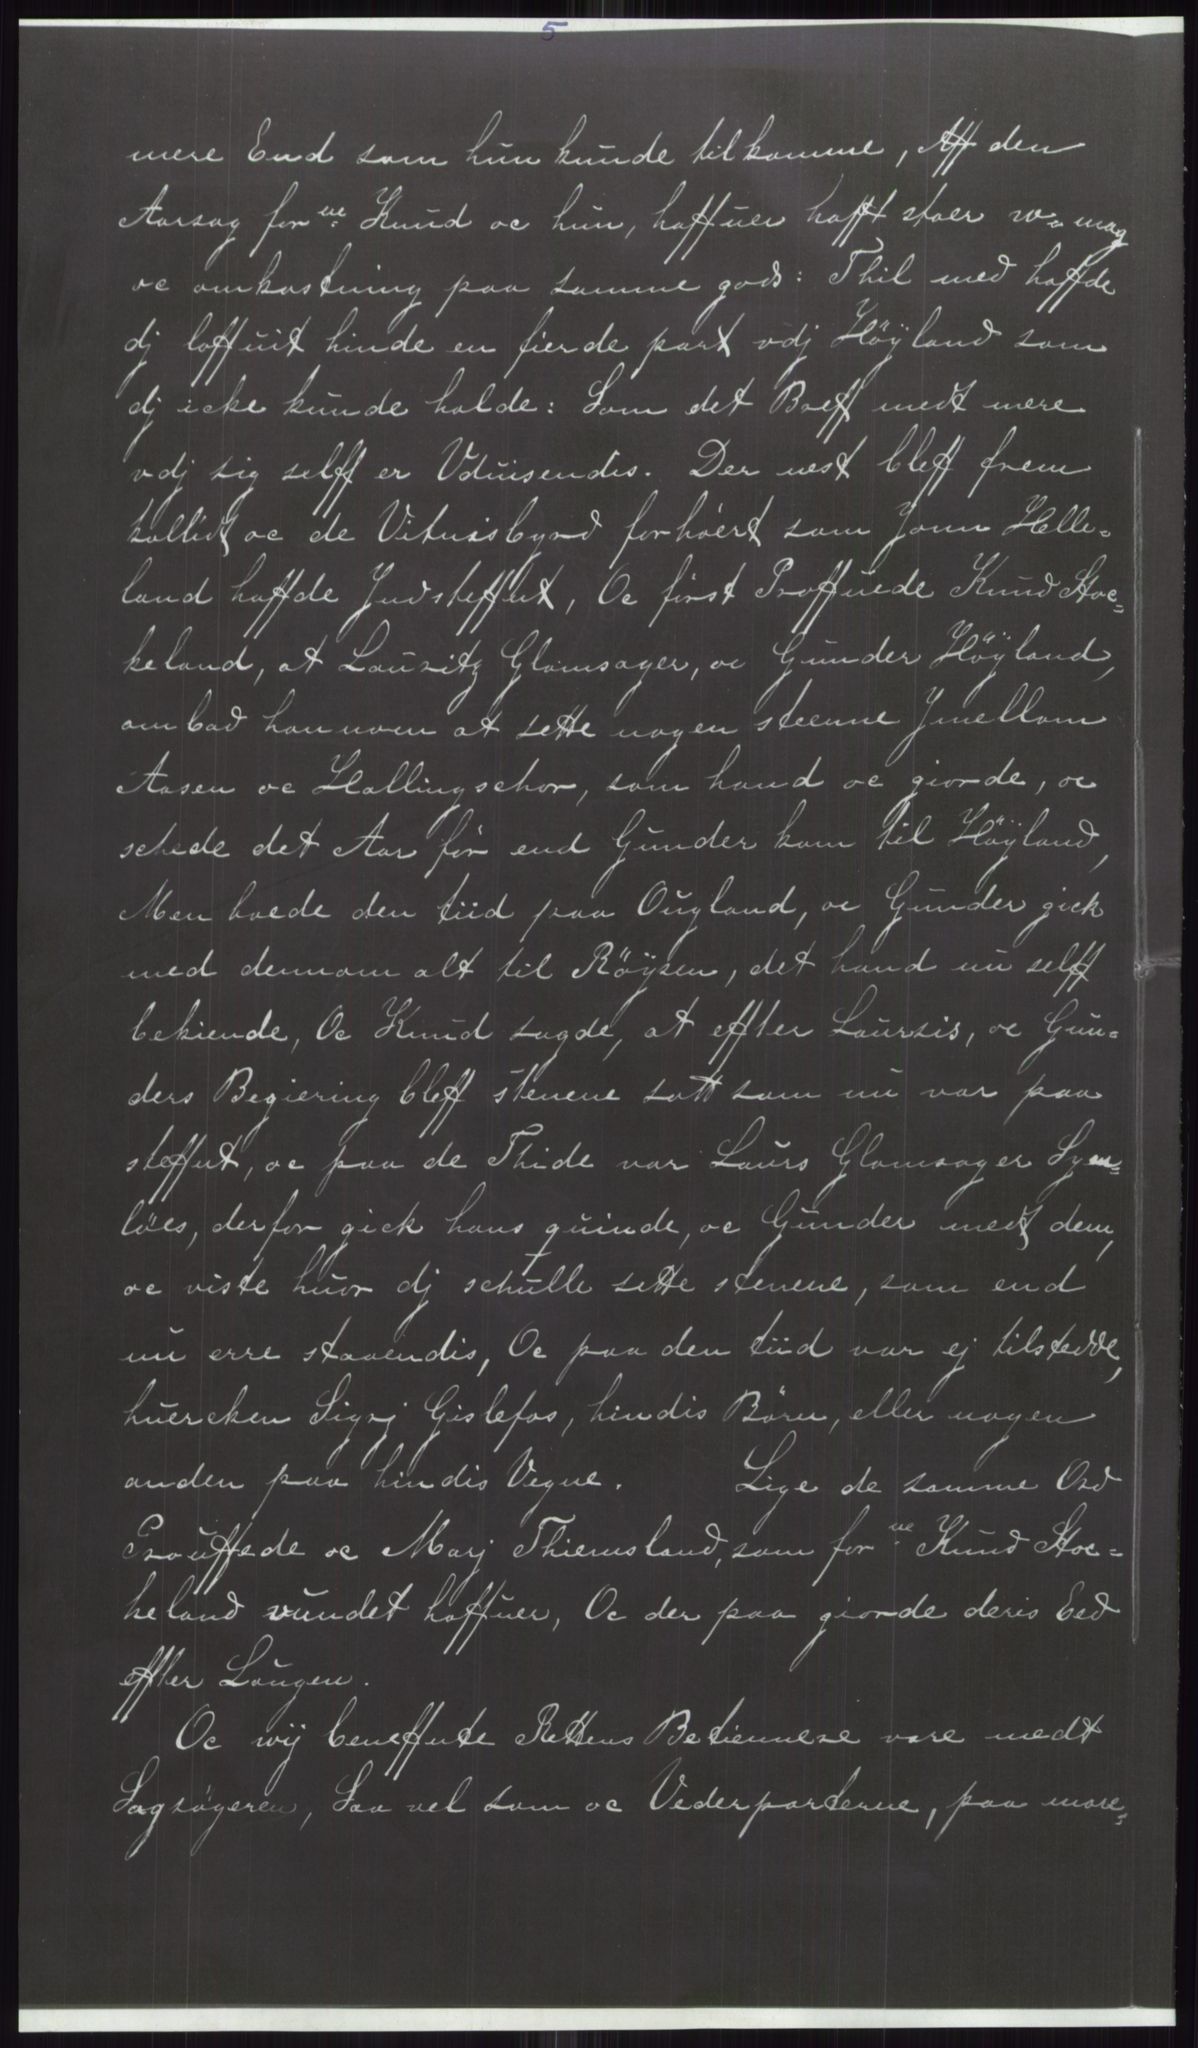 5
mere End som hun kunde tilkomme, Aff den
Aarsag for ne: Knud oc hun, haffuer hafft stoer w=mag
oc omkostning paa samme gods: Thil med haffde
dj loffuit hinde en fierde part vdj Höÿland som
dj icke kunde holde: Som det Breff medt mere
vdj sig selff er Vduisendis. Der nest bleff frem
kallidt oc de Vitnisbyrd forhört som Jonn Helle=
land haffde Jndsteffnt, Oc först Proffuede Knud Stoc=
keland, at Lauritz Glomsager, oc Gunder Höÿland,
ombad hannom at sette nogen steenne Jmellom
Aasen oc Hallingschor, som hand oc giorde, oc
schede det Aar för end Gunder kom til Höÿland,
Men boede den tiid paa Ougland, oc Gunder gick
med dennom alt til Röÿsen, det hand nu selff
bekiende, Oc Knud sagde, at effter Laursis, oc Gun=
ders Begiering bleff stenene satt som nu var paa
steffnt, oc paa de Thide var Laurs Glomsager Syen=
löes, derfor gick hans quinde, oc Gunder medt dem,
oc viste huor dj schulle sette stenene, som end
nu erre staaendis, Oc paa den tiid var ej tilstedde,
huercken Sigrj Gislefos, hindis Börn, eller nogen
anden paa hindis Vegne. Lige de samme Ord
Prouffede oc Marj Thiemsland, som for ne: Knud Stoc=
keland vundet haffuer, Oc der paa giorde deris Eed
effter Lougen.
Oc wij beneffnte Rettens Betiennere vare medt
Sagsögeren, Saa vel som oc Vederparterne, paa more=